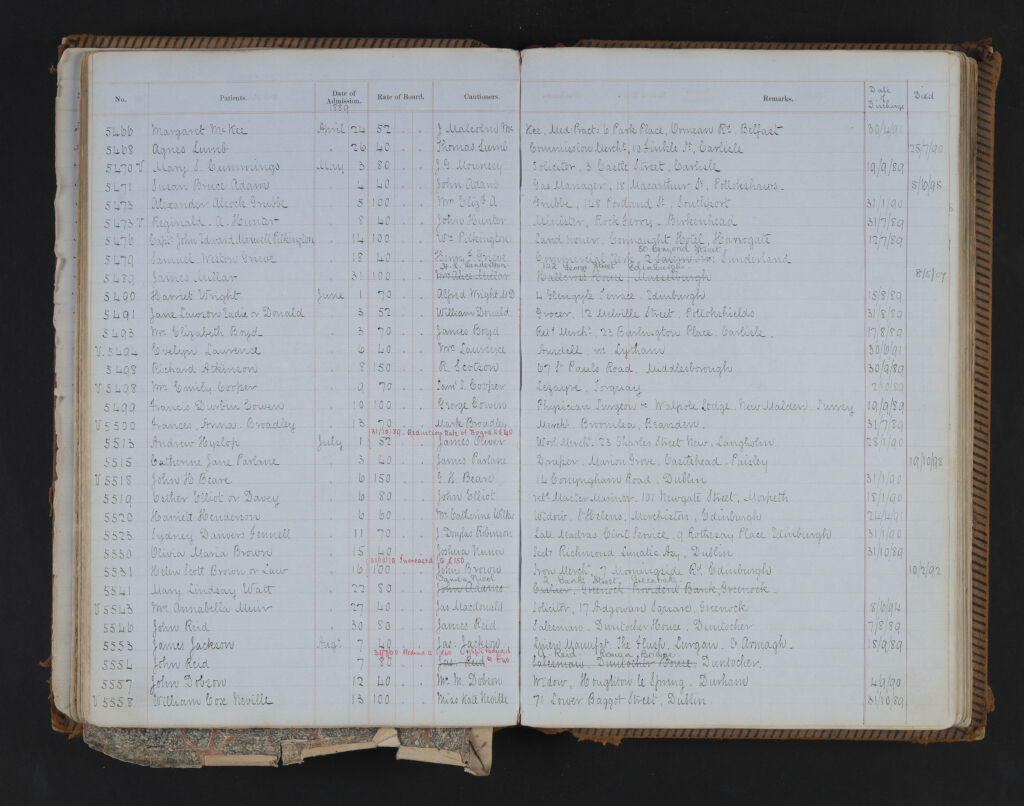 No. Patients. Date of Admission. Rate of Board. Cautioners. Remarks. Date of Discharge Died
1889
5466 Margaret McKee April 24 52 J Malcolm Mc Kee, Med. Pract. 6 Park Place, Ormeau Rd, Belfast 30/4/91
5468 Agnes Lumb 26 40 Thomas Lumb Commission Mercht, 10 Finkle St, Carlisle 25/7/90
5470 V Mary S. Cummings May 3 80 J. G. Mounsey Solicitor, 3 Castle Street, Carlisle 19/9/89
5471 Susan Bruce Adam 4 40 John Adam Gas Manager, 18 Macarthur St, Pollokshaws 8/6/98
5473 Alexander Alcock Grubbe 5 100 Mrs Elizth A Grubbe, 148 Portland St. Southport 31/1/90
5473 V Reginald A. Hunter 8 40 John Hunter Minister, Rock Ferry, Birkenhead 31/7/89
5476 Capt. John Edward Maxwell Pilkington 14 100 Wm Pilkington Land owner, Connaught Hotel, Harrogate 12/7/89
50 Esmond Street
5479 Samuel Weston Grieve 18 40 Henry F. Grieve Commercial Clerk, Sunderland 31/7/89
H. Henderson 122 George Street Edinburgh
5489 James Millar 31 100 Mrs Alice Millar House, Musselburgh 8/5/07
5490 Harriet Wright June 1 70 Alfred Wright M.D 4 Glengyle Terrace, Edinburgh 15/8/89
5491 Jane Lawson Eadie or Donald 3 52 William Donald Grocer, 12 Melville Street, Pollokshields 31/8/89
5493 Mrs Elizabeth Boyd 3 70 James Boyd Retd Mercht, 23 Earlington Place, Carlisle 17/8/89
V 5494 Evelyn Lawrence 6 40 Mrs Lawrence Ansdell, nr Lytham 30/6/91
5498 Richard Atkinson 8 150 R. Scotson 67 St Pauls Road, Middlesborough 30/9/89
V 5498 Mrs Emily Cooper 9 70 Saml S. Cooper Torquay 2/10/89
5499 Francis Durbin Cowen 10 100 George Cowen Physician Surgeon &c Walpole Lodge, New Malden, Surrey 19/9/89
V 5500 Frances Anna Broadley 13 70 Mark Broadley Mercht. Bromlea, Bearsden 31/8/89
31/10/89 Reduction Rate of Board to £40
5513 Andrew Hyslop July 1 52 James Oliver Wool Mercht. 23 Charles Street New, Langholm 28/1/90
5515 Catherine Jane Parlane 3 40 James Parlane Draper, Marion Grove, Castlehead, Paisley 19/10/98
V 5518 John H Beare 6 150 G. H. Beare 14 Conyngham Road, Dublin 31/1/90
5519 Esther Elliot or Davey 6 80 John Elliot retd Master Mariner, 101 Newgate Street, Morpeth 18/1/90
5520 Harriett Henderson 6 60 Mrs Catherine Wilkie Widow, St Helens, Merchiston, Edinburgh 24/4/91
5523 Sydney Danvers Fennell 11 70 J. Douglas Robinson Late Madras Civil Service, 9 Rothesay Place Edinburgh 31/1/90
5530 Olivia Maria Brown 15 40 Joshua Nunn Sect Richmond Lunatic Asy, Dublin 31/10/89
Increased to £150
5531 Helen Scott Brown or Law 16 100 John Brown Iron Mercht, 7 Morningside Rd, Edinburgh 10/2/92
Nicol 2 Bank Street, Greenock
5541 Mary Lindsay Watt 22 80 John Adames Cashier, Greenock Provident Bank, Greenock
V 5543 Mrs Annabella Muir 27 40 Jas Macdonald Solicitor, 17 Ardgowan Square, Greenock 8/6/94
5546 John Reid 30 80 James Reid Salesman, Duntocher House, Duntocher 7/8/89
5553 James Jackson Augt 7 40 Jas. Jackson Linen Manufact. The Flush, Lurgan, Co Armagh 18/9/89
Reduced to £40 Reid
5554 John Reid 7 80 Jas. Reid Salesman, Duntocher House, Duntocher
5557 John Dobson 12 40 Mrs M. Dobson Widow, Houghton le Spring, Durham 4/9/90
V 5558 William Cox Neville 13 100 Miss Kate Neville 71 Lower Baggot Street, Dublin 31/10/89